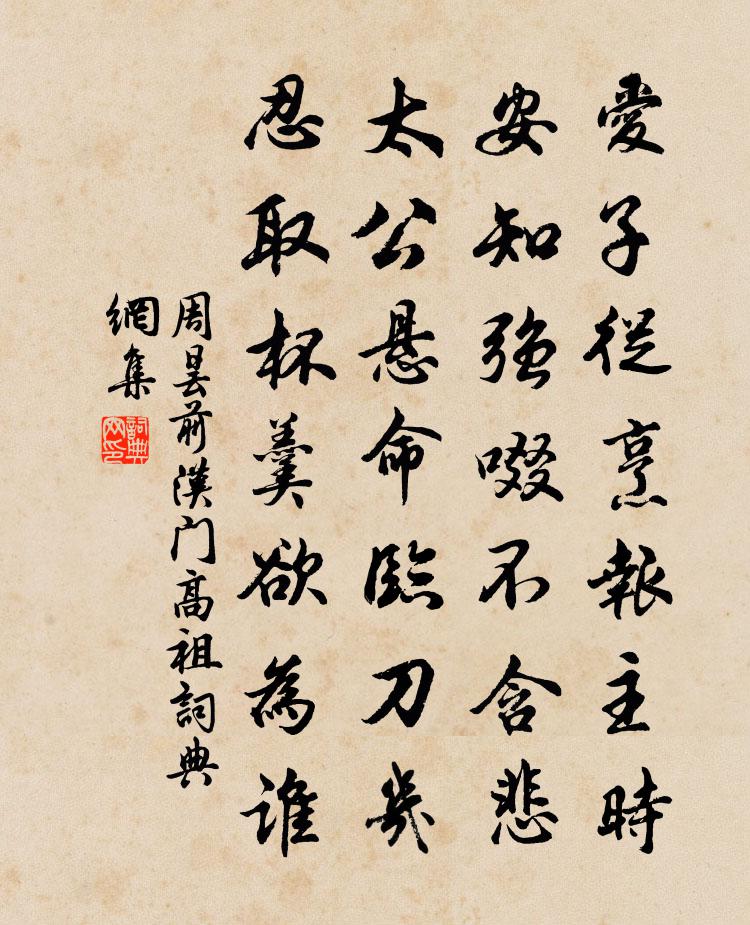 愛子從烹報主時
安知強啜不含悲
太公懸命臨刀幾
忍取杯羹欲為誰
周曇前漢門高祖詞典
網集
詞典網印